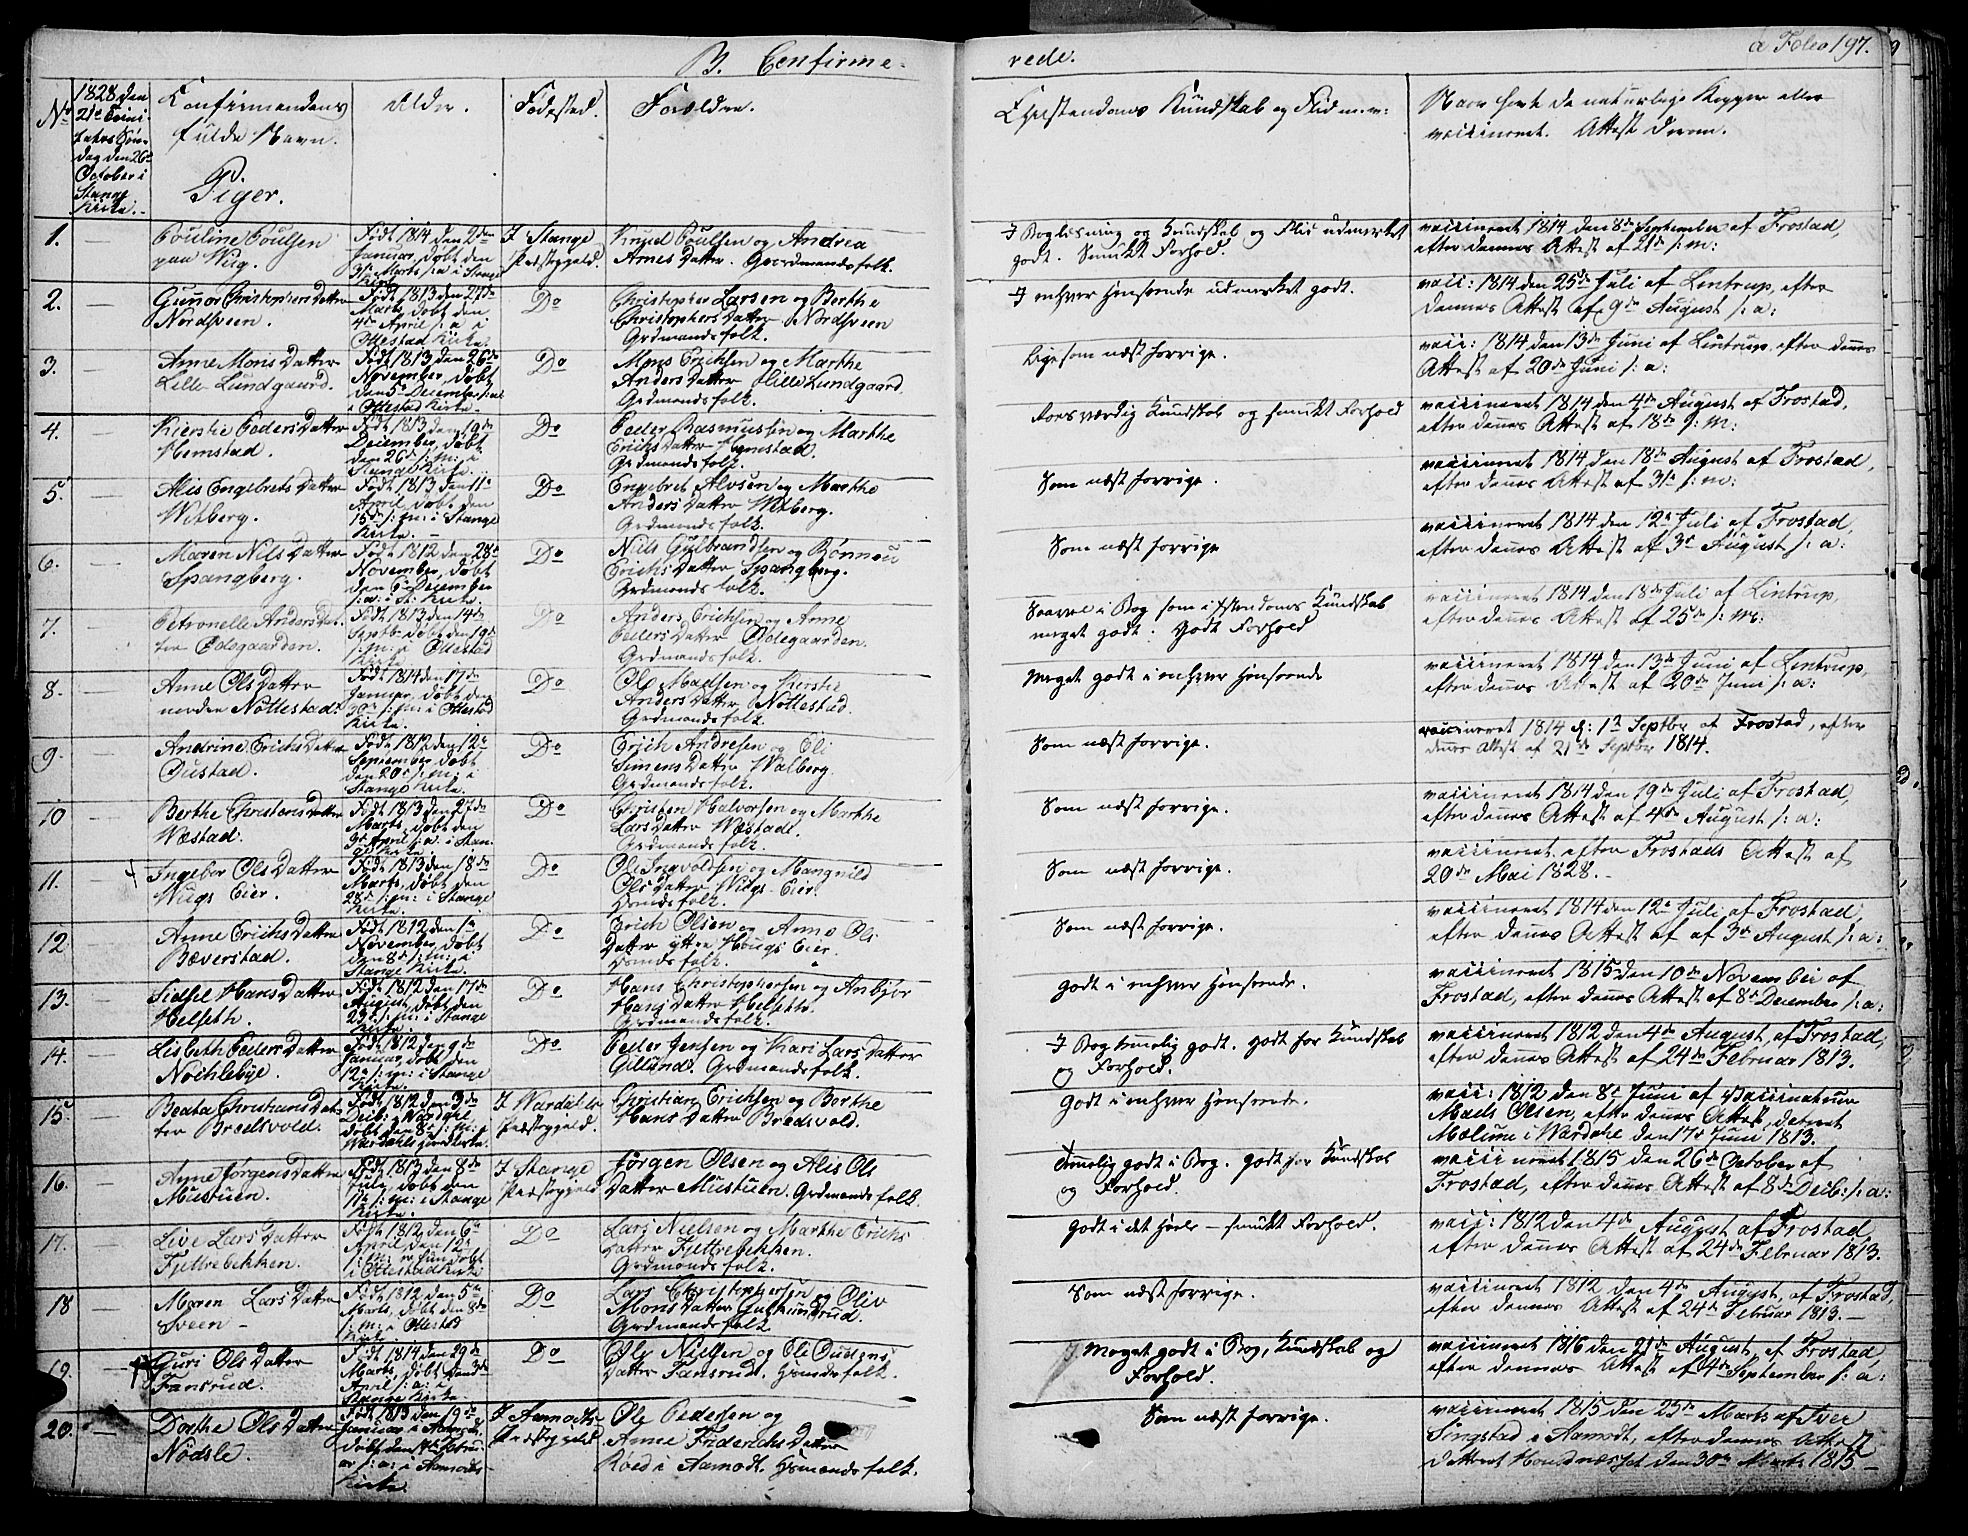 B. Confirme-
rede.
a Folio 197.
No
1828 den
21de Trini-
tatis Søn-
dag den 26de
October i
Stange
Kirke.
Konfirmandens
fulde Navn.
Piger.
Alder.
Fødested.
Forældre.
Christendoms Kundskab og Flid m.m.:
Naar havt de naturlige Kopper eller
vaccineret. Attest derom.
1.
Pouline Poulsen
paa Wiig.
Født 1814 den 2den
Januar, døbt den
Marts s: a: i Stange
Kirke
I Stange
Præstegjeld.
Knud Poulsen og Andrea
Arnes Datter. Gaardmandsfolk.
I Boglæsning og Kundskab og Flid udmærket
godt. Smukt Forhold.
vaccineret 1814 den 8de September af Frostad,
efter dennes Attest af 21de s: m:
2.
Gunor Christophers Datter
Nordsveen.
Født 1813 den 27de
Marts, døbt den
4de April s: a: i
Ottestad Kirke.
Do
Christopher Larsen og Berthe
Christophers Datter Nordsveen
Grdmandsfolk.
I enhver Henseende udmærket godt.
vacc: 1814 den 25de Juli af Lintrup, efter
dennes Attest af 9de August s: a:
3.
Anne Mons Datter
Lille Lundgaard.
Født 1813 den 26de
November, døbt
den 5te December s: a:
i Ottestad Kirke.
Do
Mons Erichsen og Marthe
Anders Datter Lille Lundgaard
Grdmandsfolk.
Ligesom næst forrige.
vacc: 1814 den 13de Juni af Lintrup, efter dennes
Attest af 20de Juni s: a:
4.
Kierstie Peders Datter
Hemstad.
Født 1813 den 19de
December, døbt
den 26de s: m: i
Stange Kirke.
Do
Peder Rasmussen og Marthe
Erichs Datter Hemstad.
Grdmandsfolk.
Roesværdig Kundskab og smukt Forhold
vaccineret 1814 den 4de August af Frostad,
efter dennes Attest af 18de s: m:
5.
Alis Engebrets Datter
Witberg.
Født 1813 den 11te
April, døbt den
15de s: m: i Stange
Kirke.
Do
Engebret Alvsen og Marthe
Anders Datter Witberg.
Grdmandsfolk.
Som næst forrige.
vaccineret 1814 den 18de August af Frostad,
efter dennes Attest af 31te s: m:
6.
Maren Nils Datter
Spangberg.
Født 1812 den 28de
November, døbt
den 6te December
s: a: i St: Kirke.
Do
Niels Gulbrandsen og Rønnau
Erichs Datter Spangberg.
Grdmandsfolk.
Som næst forrige
vaccineret 1814 den 12te Juli af Frostad,
efter dennes Attest af 3de August s: a:
7.
Petronelle Anders Dat-
ter Ødegaarden.
Født 1813 den 14de
Septbr. døbt den 19de
s: m: i Ottestad
Kirke
Do
Anders Erichsen og Anne
Peders Datter Ødegaarden.
Grdmandsfolk.
Saavel i Bog som i Xstendoms Kundskab
meget godt. Godt Forhold
vaccineret 1814 den 18de Juli af Lintrup,
efter dennes Attest af 25de s: m:
8.
Anne Ols Datter
nordre Nøttestad.
Født 1814 den 17de
Januar, døbt den
30te s: m: i Ottestad
Kirke.
Do
Ole Madsen og Kierstie
Anders Datter, Nøttestad.
Grdmandsfolk
Meget godt i enhver Henseende
vaccineret 1814 den 13de Juni af Lintrup,
efter dennes Attest af 20de Juni s: a:
9.
Andrine Erichs Datter
Oustad.
Født 1812 den 12te
September, døbt
den 20de s: m: i
Stange Kirke.
Do
Erich Andresen og Eli
Simens Datter Walberg.
Grdmandsfolk.
Som næst forrige.
vaccineret 1814 d: 1te Septbr af Frostad, efter
dennes Attest af 21de Septbr 1814.
10
Berthe Christens Datter
Wæstad.
Født 1813 den 27de
Marts, døbt den
3de April s: a: i Stan-
ge Kirke.
Do
Christen Halvorsen og Marthe
Lars Datter Wæstad.
Grdmandsfolk.
Som næst forrige.
vaccineret 1814 den 19de Juli af Frostad,
efter dennes Attest af 4de August s: a:
11.
Ingebor Ols Datter
Wiigs Eier.
Født 1813 den 18de
Marts, døbt den
28de s: m: i Stange
Kirke.
Do
Ole Ingvoldsen og Mangnild
Ols Datter Wiigs Eier.
Hsmdsfolk.
Som næst forrige.
vaccineret efter Frostads Attest af
20de Mai 1828.
12.
Anne Erichs Datter
Bæverstad.
Født 1812 den 1te
November, døbt
den 8de s: m: i
Stange Kirke.
Do
Erich Olsen og Anne Ols
Datter yttre Hougs Eier.
Hsmdsfolk.
Som næst forrige.
vaccineret 1814 den 12te Juli af Frostad,
efter dennes Attest af af 3de August s: a:
13.
Sidsel Hans Datter
Helseth.
Født 1812 den 17de
August, døbt den
23de s: m: i Stange
Kirke.
Do
Hans Christophersen og Anbjør
Hans Datter Helseth.
Grdmandsfolk.
Godt i enhver Henseende.
vaccineret 1815 den 10de November af
Frostad, efter dennes Attest af 8de December s: a:
14.
Lisbeth Peders Datter
Nochlebye.
Født 1812 den 9de
Januar, døbt den
12te s: m: i Stange
Kirke.
Do
Peder Jensen og Kari Lars Datter
Gillund. Grdmandsfolk.
I Bog temmelig godt. Godt for Kundskab
og Forhold.
vaccineret 1812 den 4de August, af Frostad,
efter dennes Attest af 24de Februar 1813.
15
Beata Christians Dat-
ter Bredsvold.
Født 1812 den 3de
Decb: i Wardahl
døbt den 8de s: m: i
Wardahls Kirke.
I Wardahls
Præstegjeld.
Christian Erichsen og Berthe
Hans Datter Bredsvold.
Godt i enhver Henseende.
vacc: 1812 den 8de Juni af Vaccinateur
Mads Olsen, efter dennes Attest, dateret
Mælum i Wardahl den 17de Juni 1813.
16.
Anne Jørgens Datter
Mustuen.
Født 1813 den 8de
July, døbt den
s: m: i Stange
Kirke.
I Stange
Præstegjeld
Jørgen Olsen og Alis Ols
Datter Mustuen. Grdmandsfolk.
Temmelig godt i Bog. Godt for Kundskab
og Forhold.
vaccineret 1815 den 26de October af
Frostad, efter dennes Attest af 8de Decb: s: a:
17.
Live Lars Datter
Fjettrebekken.
Født 1812 den 6te
April, den 12te
s: m: er hun døbt
i Ottestad Kirke
Do
Lars Nielsen og Marthe Erichs
Datter Fjettrebekken.
Grdmandsfolk.
Godt i det hele - smukt Forhold.
vacc: 1812 den 4de August af Frostad
efter dennes Attest af 24de Februar 1813.
18
Maren Lars Datter
Sveen
Født 1812 den 5te
Marts, døbt den 8de
s: m: i Ottestad
Kirke
Do
Lars Christophersen og Oliv
Mons Datter
Grdmandsfolk
Som næst forrige.
vaccineret 1812 den 4de August, af Frostad,
efter dennes Attest af 24de Februar 1813.
19.
Guri Ols Datter
Fansrud.
Født 1814 den 29de
Marts, døbt den 3de
April s: a: i
Stange Kirke.
Do
Ole Nielsen og Oli Oustens
Datter Fansrud. Hsmdsfolk.
Meget godt i Bog, Kundskab og
Forhold.
vaccineret 1816 den 21de August, af Frostad,
efter dennes Attest af 4de September s: a:
20.
Dorthe Ols Datter
Nødsle.
Født 1813 den 19de
Januar i Aamodt,
døbt den Febru-
ar s: a: i Aamodts
Kirke.
I Aamodts
Præstegjeld
Ole Pedersen og
Anne Friderichs Datter
Roed i Aamodt. Hsmandsfolk.
Som næst forrige.
vaccineret 1815 den 23de Marts af Iver
Singstad i Aamodt, efter dennes Attest
dateret den 30te Marts 1815.